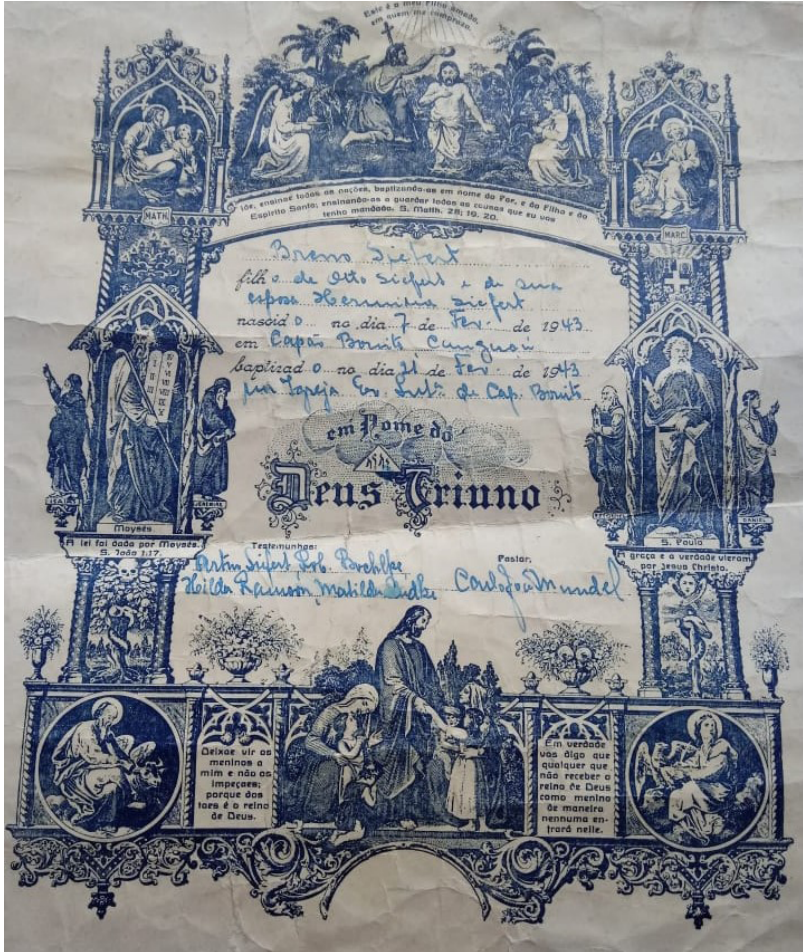 Este é o meu Filho amado,
em quem me comprazo.
Ide, ensinae todas as nações, baptizando-as em nome do Pae, e do Filho e do
Espirito Santo; ensinando-as a guardar todas as cousas que eu vos
tenho mandado. S. Matth. 28; 19. 20.
MATH.
MARC.
Breno Siefert
filho de Otto Siefert e de sua
esposa Herminia Siefert
nascido no dia 7 de Fev. de 1943
em Capão Bonito
baptizado no dia 21 de Fev. de 1943
Igreja Ev. Lut. de Cap. Bonito
em Nome do
Deus Triuno
ISAIAS
JEREMIAS
DANIEL
Moysés
A lei foi dada por Moysés.
S. João 1:17.
S. Paulo
A graça e a verdade vieram
por Jesus Christo.
Testemunhas:
Pastor,
Siefert, Rob.
Hilda Matilde
Deixae vir os
meninos a
mim e não os
impeçaes;
porque dos
taes é o reino
de Deus.
Em verdade
vos digo que
qualquer que
não receber o
reino de Deus
como menino
de maneira
nenhuma en-
trará nelle.